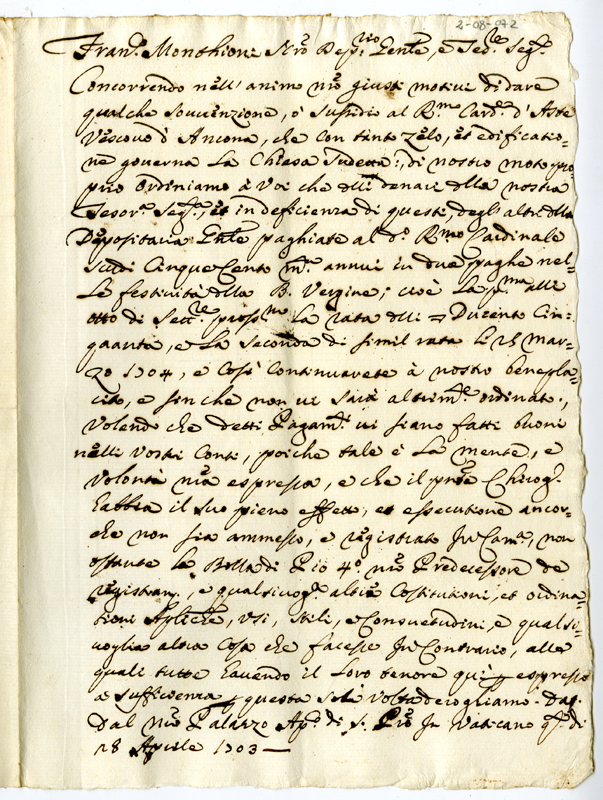 2-08-072
Fran.o Monthioni Nr̃o Dep.rio Gen̄le, e Tes.re Seg.o
Concorrendo nell' animo nr̃o giusti motivi di dare
qualche souvenzione, ò sussidio al R.mo Card.e d' Aste
Vescovo d' Ancona, che con tanto zelo, et edificatio-
ne governa la Chiesa sudetta, di nostro moto pro-
prio ordiniamo à voi che delli denari della nostra
Tesor.a Seg.a, et in deficienza di questi, degl' altri della
Depositaria Gen̄le paghiate al d.o R.mo Cardinale
scudi Cinque Cento m.ta annui in due paghe nel-
le festività della B. Vergine; cioè la p.ma alli
otto di Sett.re pross.mo la rata delli = Ducento Cin-
quanta, e la seconda di simil rata li 25 mar-
zo 1704, e così continuarete à nostro benepla-
cito, e sin che non vi sarà altrim.te ordinato,
volendo che detti Pagam.ti vi siano fatti buoni
nelli vostri Conti, poiche tale è la mente, e
volontà nr̃a espressa, e che il pñte Chirog.o
habbia il suo pieno effetto, et essecutione ancor-
che non sia ammesso, e registrato In Cam.a, non
ostante la Bolla di Pio 4.o nr̃o Predecessore de
registran., e qualsivogl.a altra Costitutioni, et ordina-
tioni Aplīche, usi, stili, e Consuetudini, e qualsi-
voglia altra Cosa che facesse In Contrario, alle
quali tutte havendo il loro tenore quì espresso
à sufficienza questa sol volta deroghiamo. Dat.
Dal nr̃o Palazzo Ap.o di S. Pro In Vaticano q.o dì
28 Aprile 1703